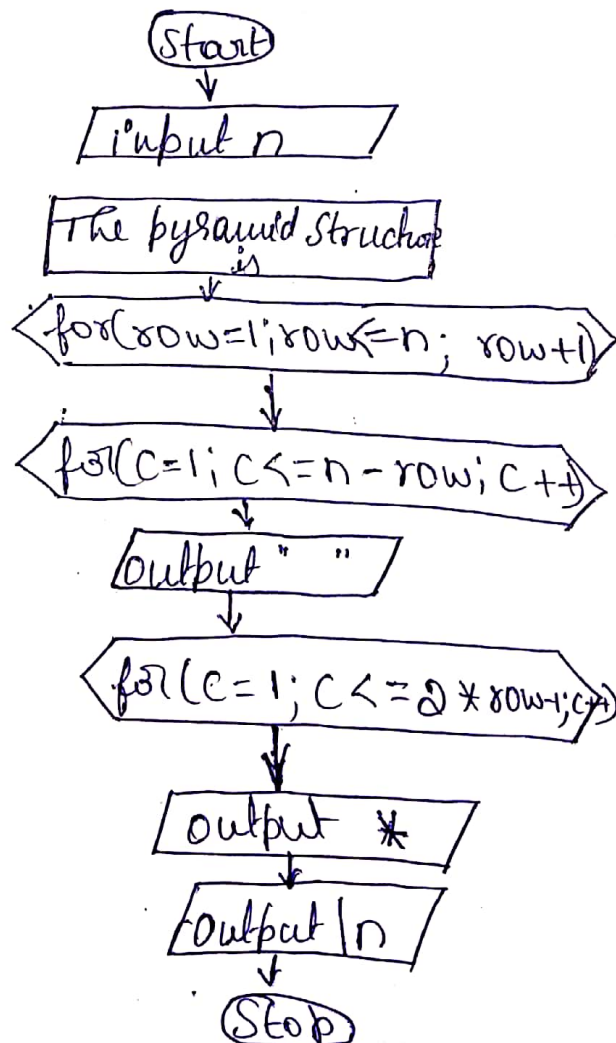 Start
input n
The pyramid structure
is
for(row=1;row<=n; row+1)
for(C=1; C<=n-row; C++)
output " "
for(C=1; C<=2*row-1;c++)
output *
output \n
Stop